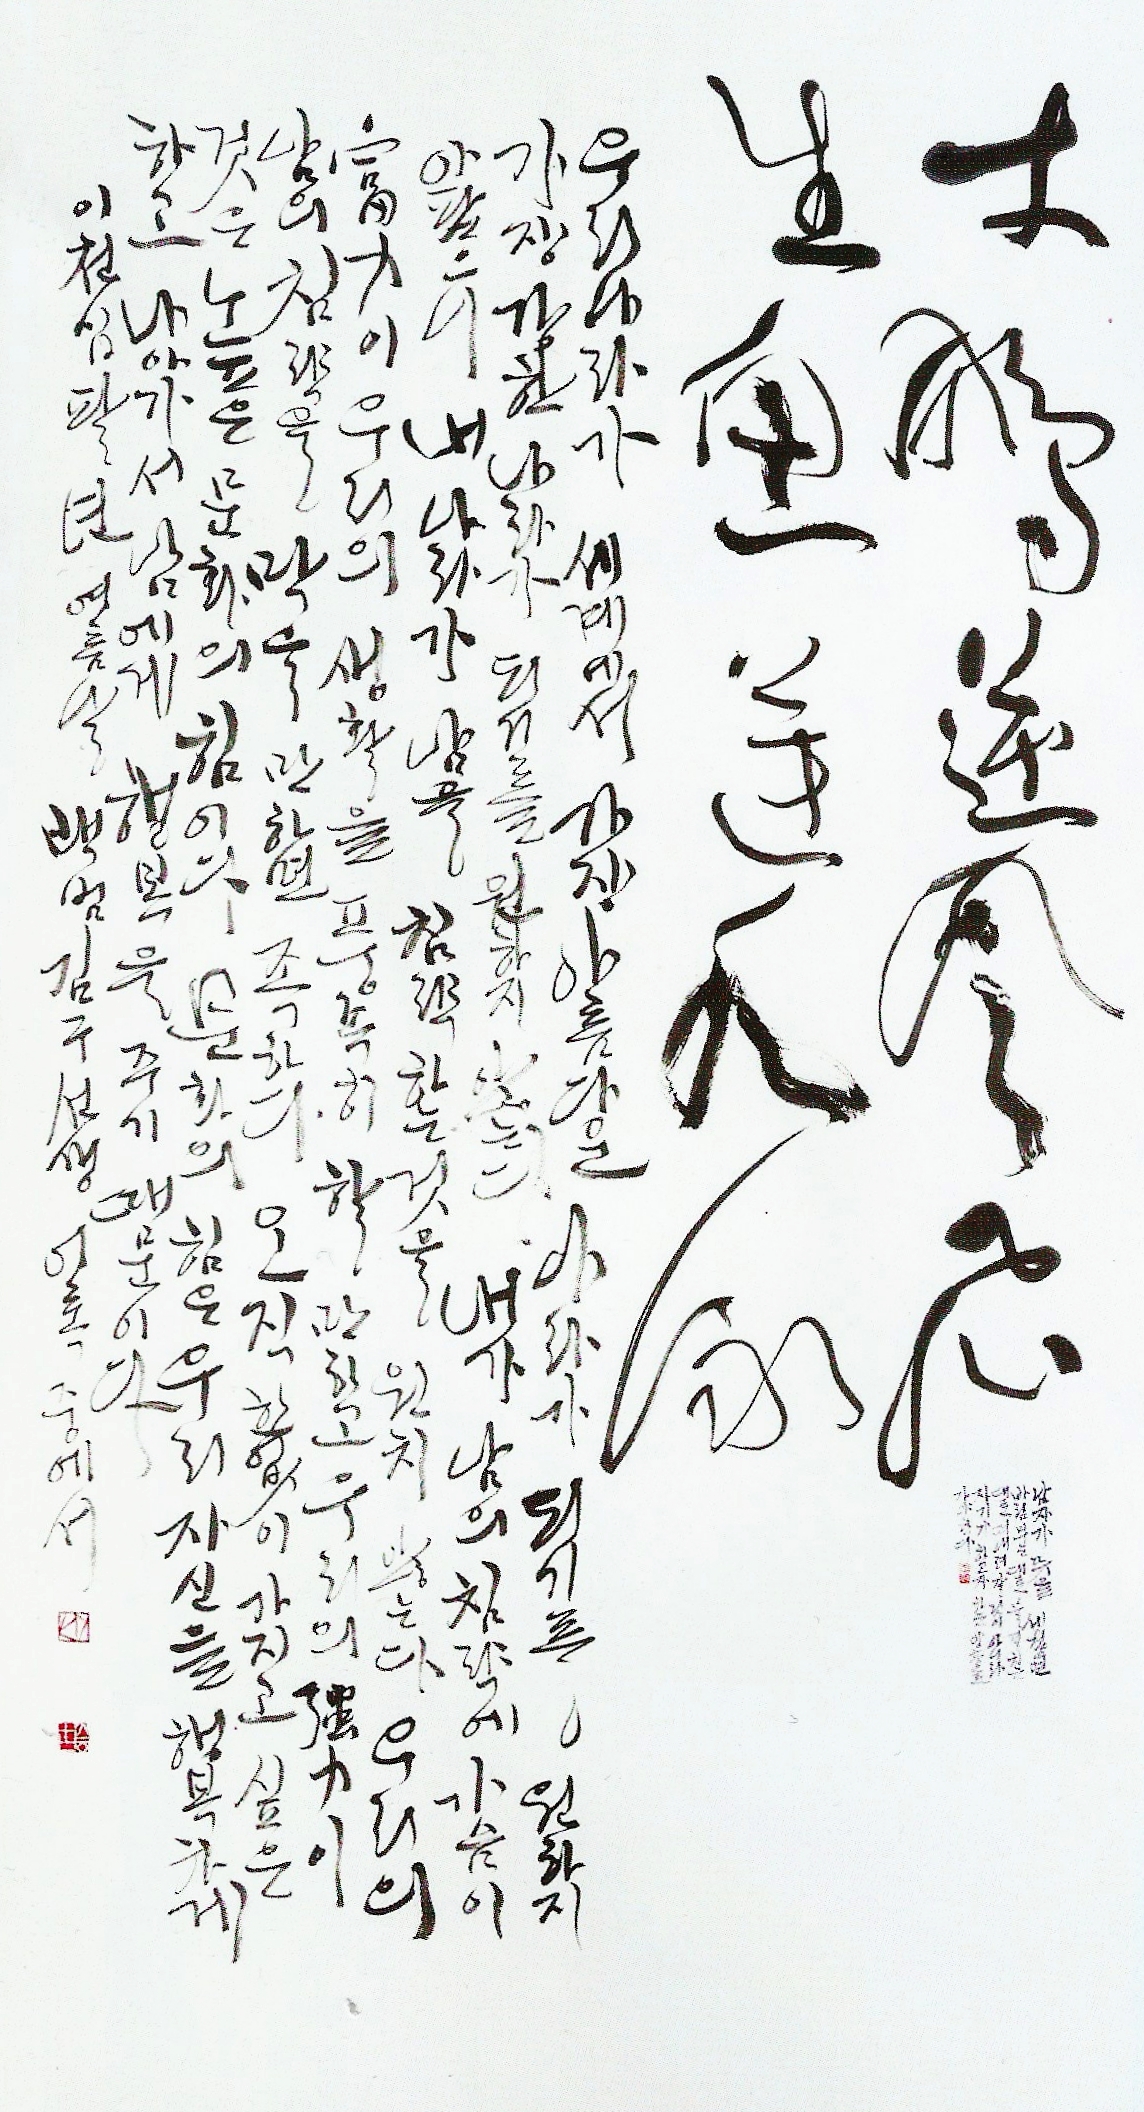 大鵬逆風飛
生魚逆水泳
우리나라가 세계에서 가장 아름다운 나라가 되기를 원하지
가장 강한 나라가 되기를 원하지 않는다. 내가 남의 침략에 가슴이
아팠으니 내 나라가 남을 침략하는 것을 원치 않는다 우리의
富力이 우리의 생활을 풍족히 할만하고 우리의 强力이
남의 침략을 막을만하면 족하다. 오직 한없이 가지고 싶은
것은 높은 문화의 힘이다 문화의 힘은 우리 자신을 행복하게
하고 나아가서 남에게 행복을 주기 때문이다
이천십팔년 여름 백범 김구 선생 어록 중에서